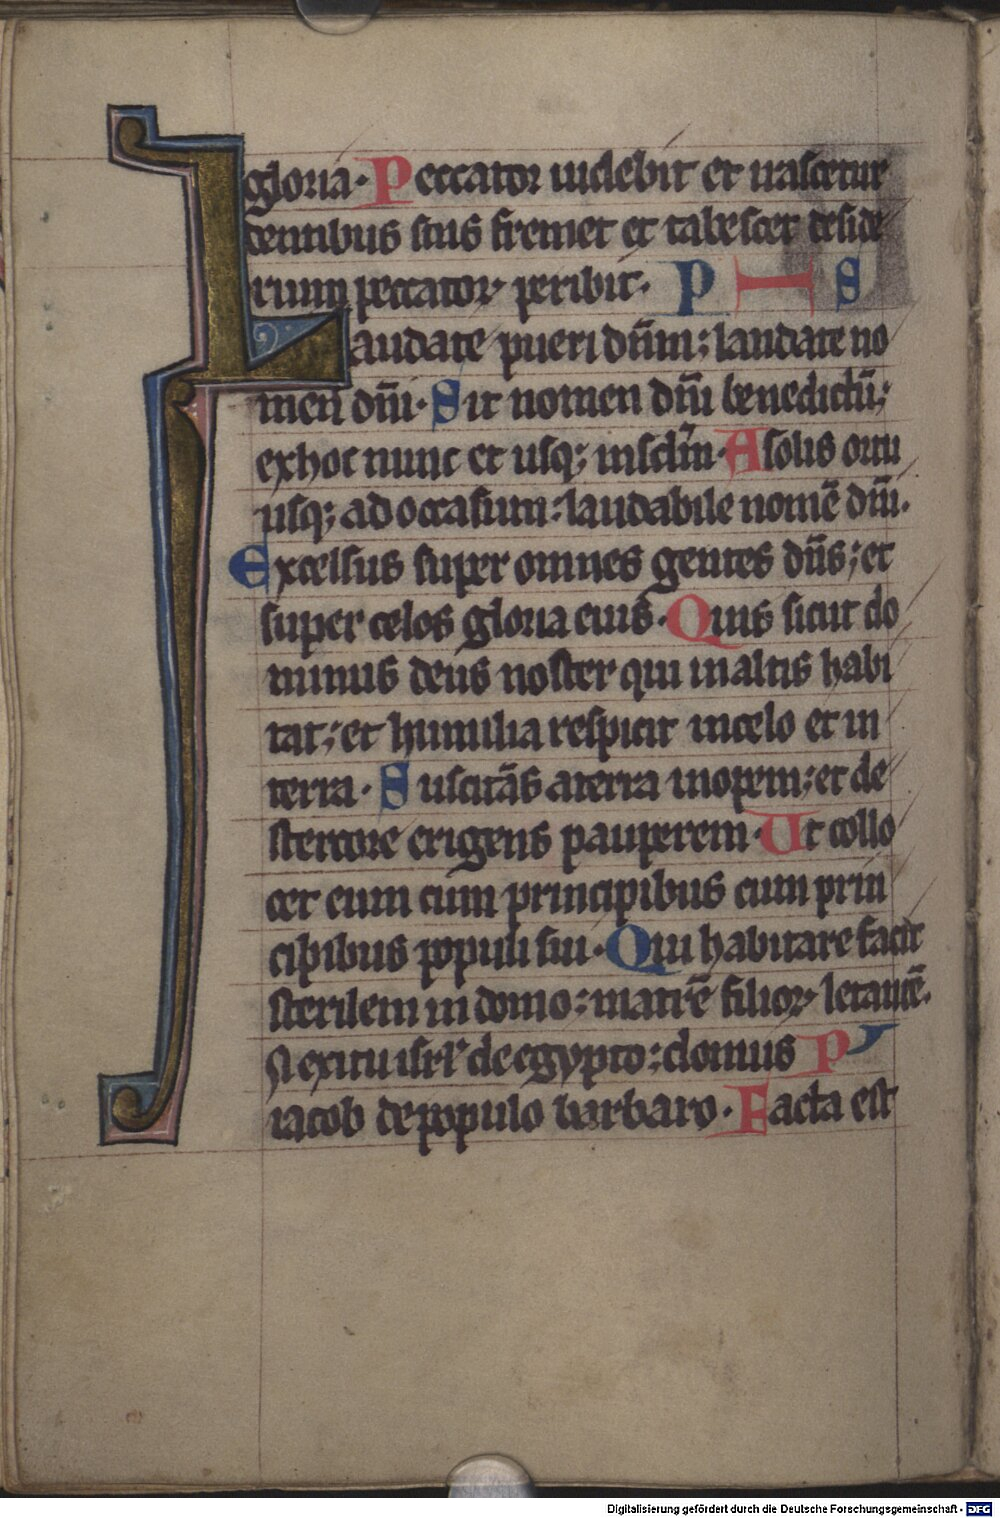 gloria. Peccator uidebit et irascetur
dentibus suis fremet et tabescet deside
rium peccatorꝝ peribit. P S
Laudate pueri dñm; laudate no
men dñi. Sit nomen dñi benedictū;
exhoc nunc et usq; insclm̄. Asolis ortu
usq; ad occasum: laudabile nomē dñi.
Excelsus super omnes gentes dñs; et
super celos gloria eius. Quis sicut do
minus deus noster qui inaltis habi
tat; et humilia respicit incelo et in
terra. Suscitās aterra inopem; et de
stercore erigens pauperem. Ut collo
cet eum cum principibus cum prin
cipibus populi sui. Qui habitare facit
sterilem in domo: matrē filiorꝝ letantē.
N exitu isrl̄ de egypto: domus P
iacob de populo barbaro. Facta est
Digitalisierung gefördert durch die Deutsche Forschungsgemeinschaft - DFG